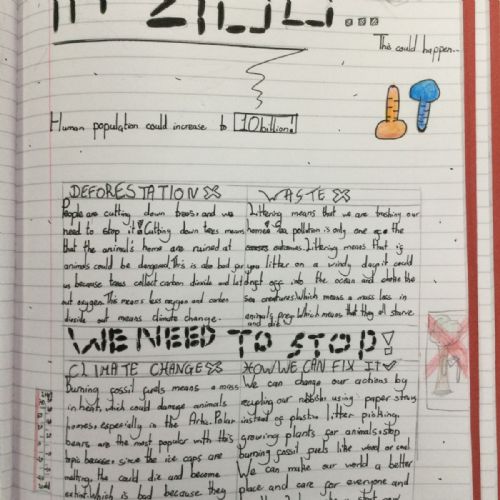 IN 2100...
This could happen...
Human population could increase to 10 billion!
DEFORESTATION X
People are cutting down trees. and we
need to stop it! Cutting down trees means
that the animal's home are ruined at
animals could be dangered. This is also bad for
us because trees collect carbon dioxide and let
out oxygen. This means less oxygen and carbon
dioxide out means climate change.
WASTE X
Littering means that we are trashing our
home! Sea pollution is only one of the
outcomes. Littering means that if
you litter on a windy day it could
drift off into the ocean and choke the
sea creatures. Which means a mass loss in
animals prey. Which means that they all starve
and die.
WE NEED TO STOP!
CLIMATE CHANGE X
Burning fossil fuels means a mass
in heat, which could damage animals
homes, especially in the Artic. Polar
bears are the most popular with this
topic because since the ice caps are
melting, the could die and become
extinct. Which is bad because they
HOW WE CAN FIX IT ✓
We can change our actions by
recycling our rubbish using paper straws
instead of plastic, litter picking,
growing plants for animals, stop
burning fossil fuels like wood or coal.
We can make our world a better
place and care for everyone and